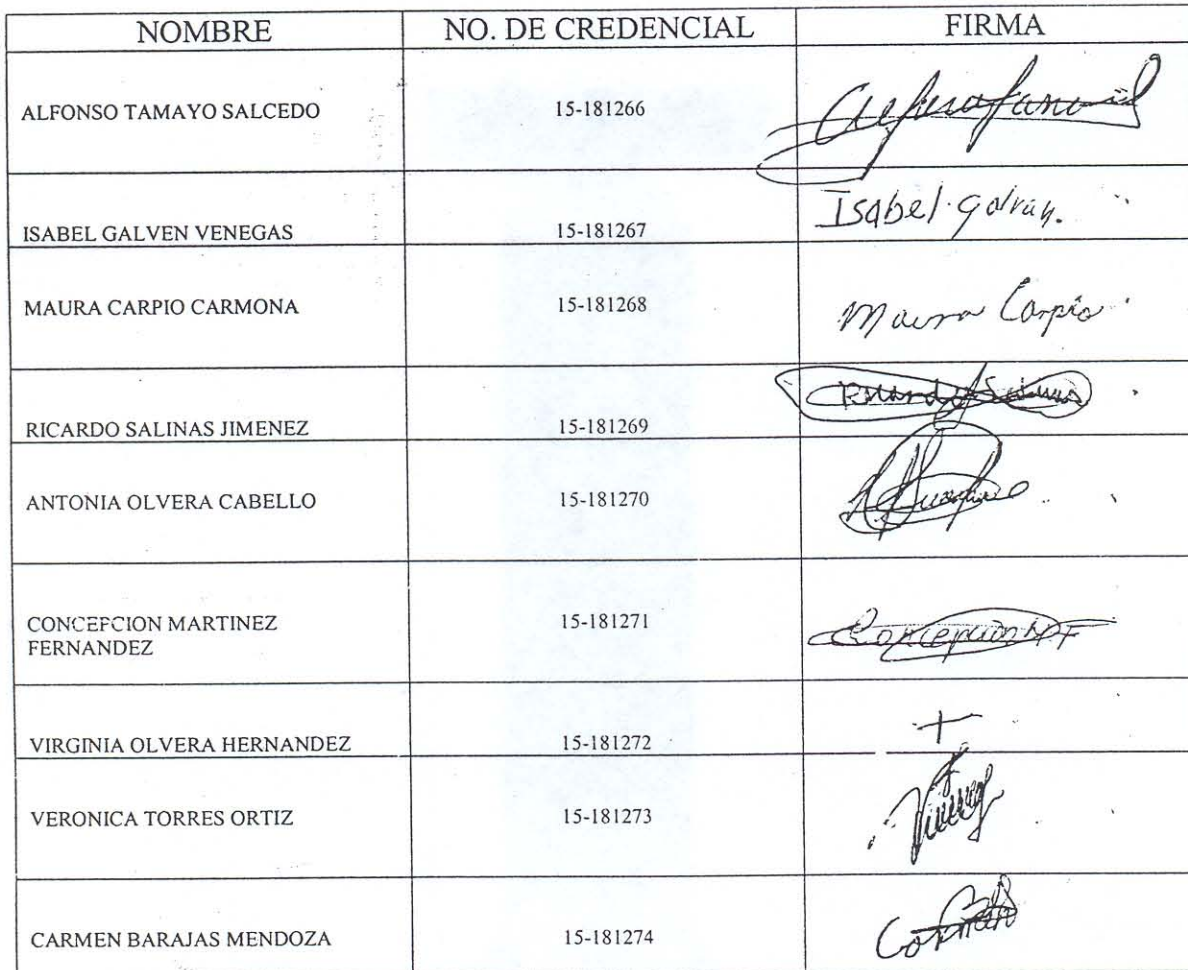 NOMBRE NO. DE CREDENCIAL FIRMA
ALFONSO TAMAYO SALCEDO 15-181266
ISABEL GALVEN VENEGAS 15-181267 Isabel Galvan.
MAURA CARPIO CARMONA 15-181268 Maura Carpio
RICARDO SALINAS JIMENEZ 15-181269
ANTONIA OLVERA CABELLO 15-181270
CONCEPCION MARTINEZ 15-181271 Concepcion M F
FERNANDEZ
VIRGINIA OLVERA HERNANDEZ 15-181272 +
VERONICA TORRES ORTIZ 15-181273
CARMEN BARAJAS MENDOZA 15-181274 Carmen